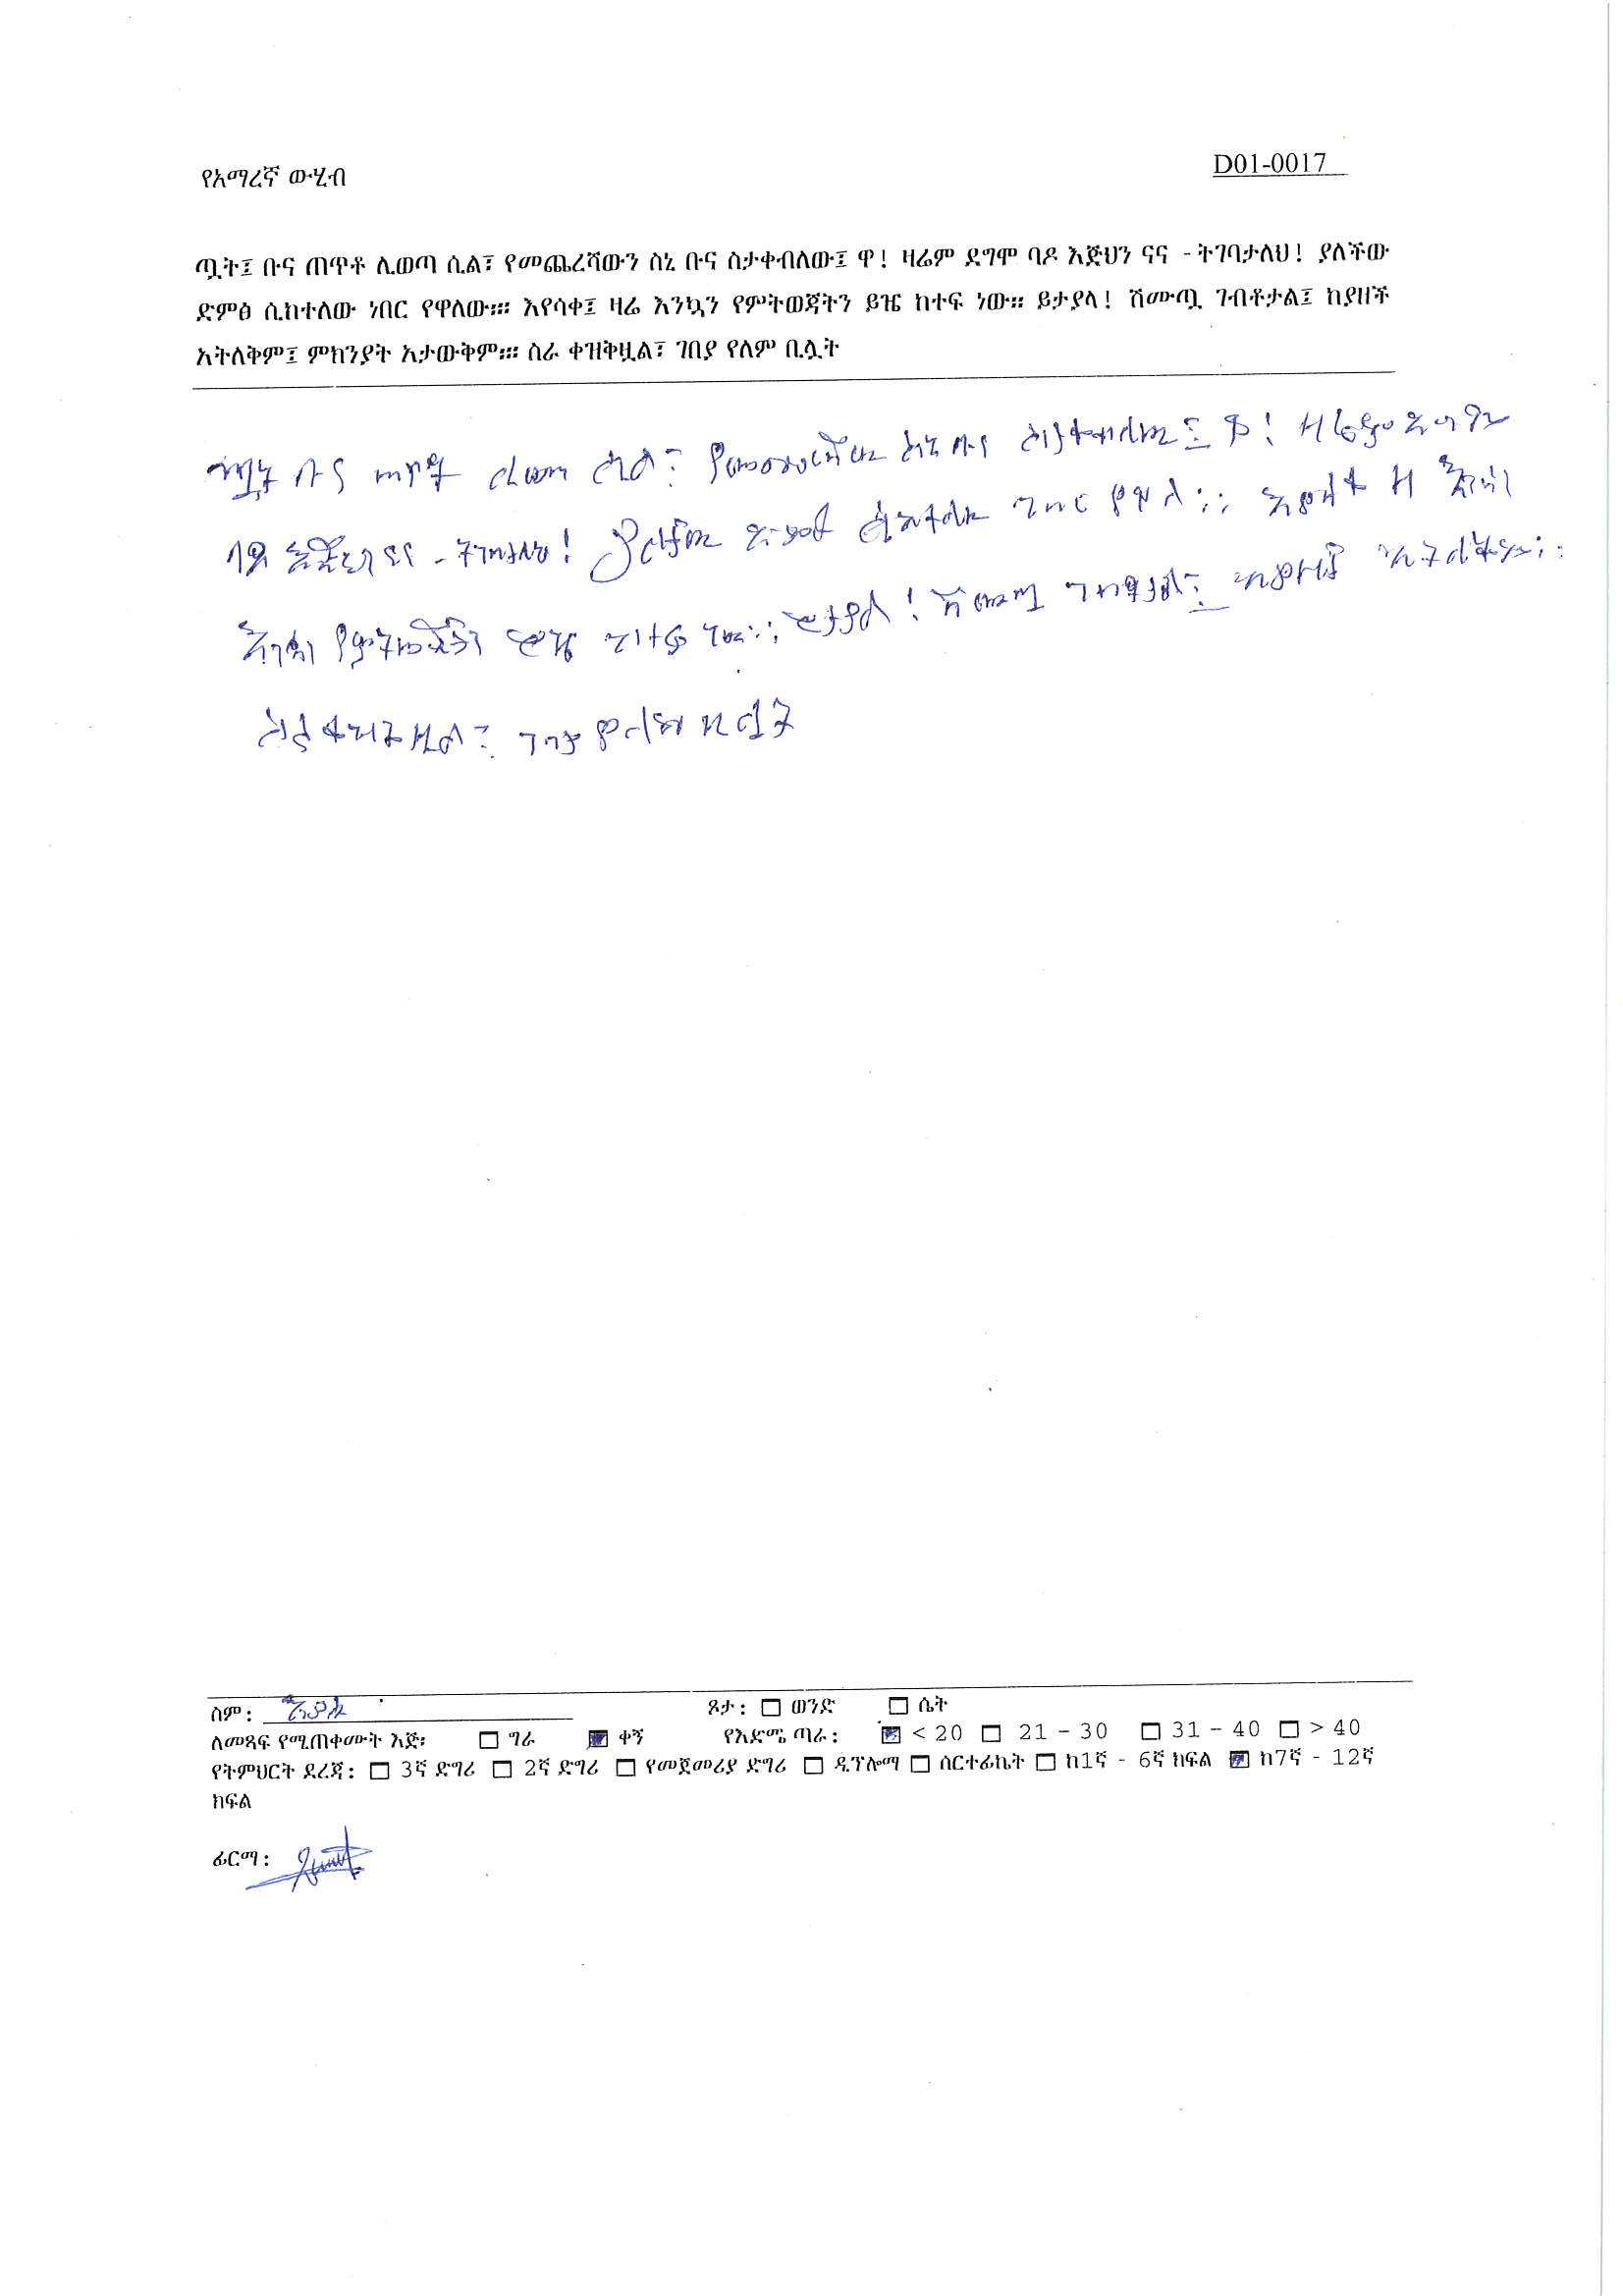 የአማረኛ ውሂብ
D01-0017
ጧት፤ ቡና ጠጥቶ ሊወጣ ሲል፣ የመጨረሻውን ስኒ ቡና ስታቀብለው፤ ዋ! ዛሬም ደግሞ ባዶ እጅህን ናና - ትገባታለህ! ያለችው
ድምፅ ሲከተለው ነበር የዋለው፡። እየሳቀ፤ ዛሬ እንኳን የምትወጃትን ይዤ ከተፍ ነው። ይታያላ! ሽሙጧ ገብቶታል፤ ከያዘች
አትለቅም፤ ምክንያት አታውቅም፡። ስራ ቀዝቅዟል፣ ገበያ የለም ቢሏት
ጧት ቡና ጠጥቶ ሊወጣ ሲል፣ የመጨረሻው ስኒ ቡና ስታቀብለው፤ ዋ! ዛሬም ደግሞ
ባዶ እጅህን ናና - ትገባታለህ! ያለችው ድምፅ ሲከተለው ነበር የዋለ። እየሳቀ ዛ
እንኳን የምትወጃትን ይዤ ከተፍ ነው። ይታያል! ሽሙጧ ገብቶታል፤ ከያዘች አትለቅም።
ስራ ቀዝቅዟል፣ ገበያ የለም ቢሏት
ስም:
ጾታ: ወንድ ሴት
ለመጻፍ የሚጠቀሙት እጅ፡ ግራ ቀኝ የእድሜ ጣራ: < 20 21 – 30 31 – 40 > 40
የትምህርት ደረጃ: 3ኛ ድግሪ 2ኛ ድግሪ የመጀመሪያ ድግሪ ዲፕሎማ ሰርተፊኬት ከ1ኛ - 6ኛ ክፍል ከ7ኛ - 12ኛ
ክፍል
ፊርማ: